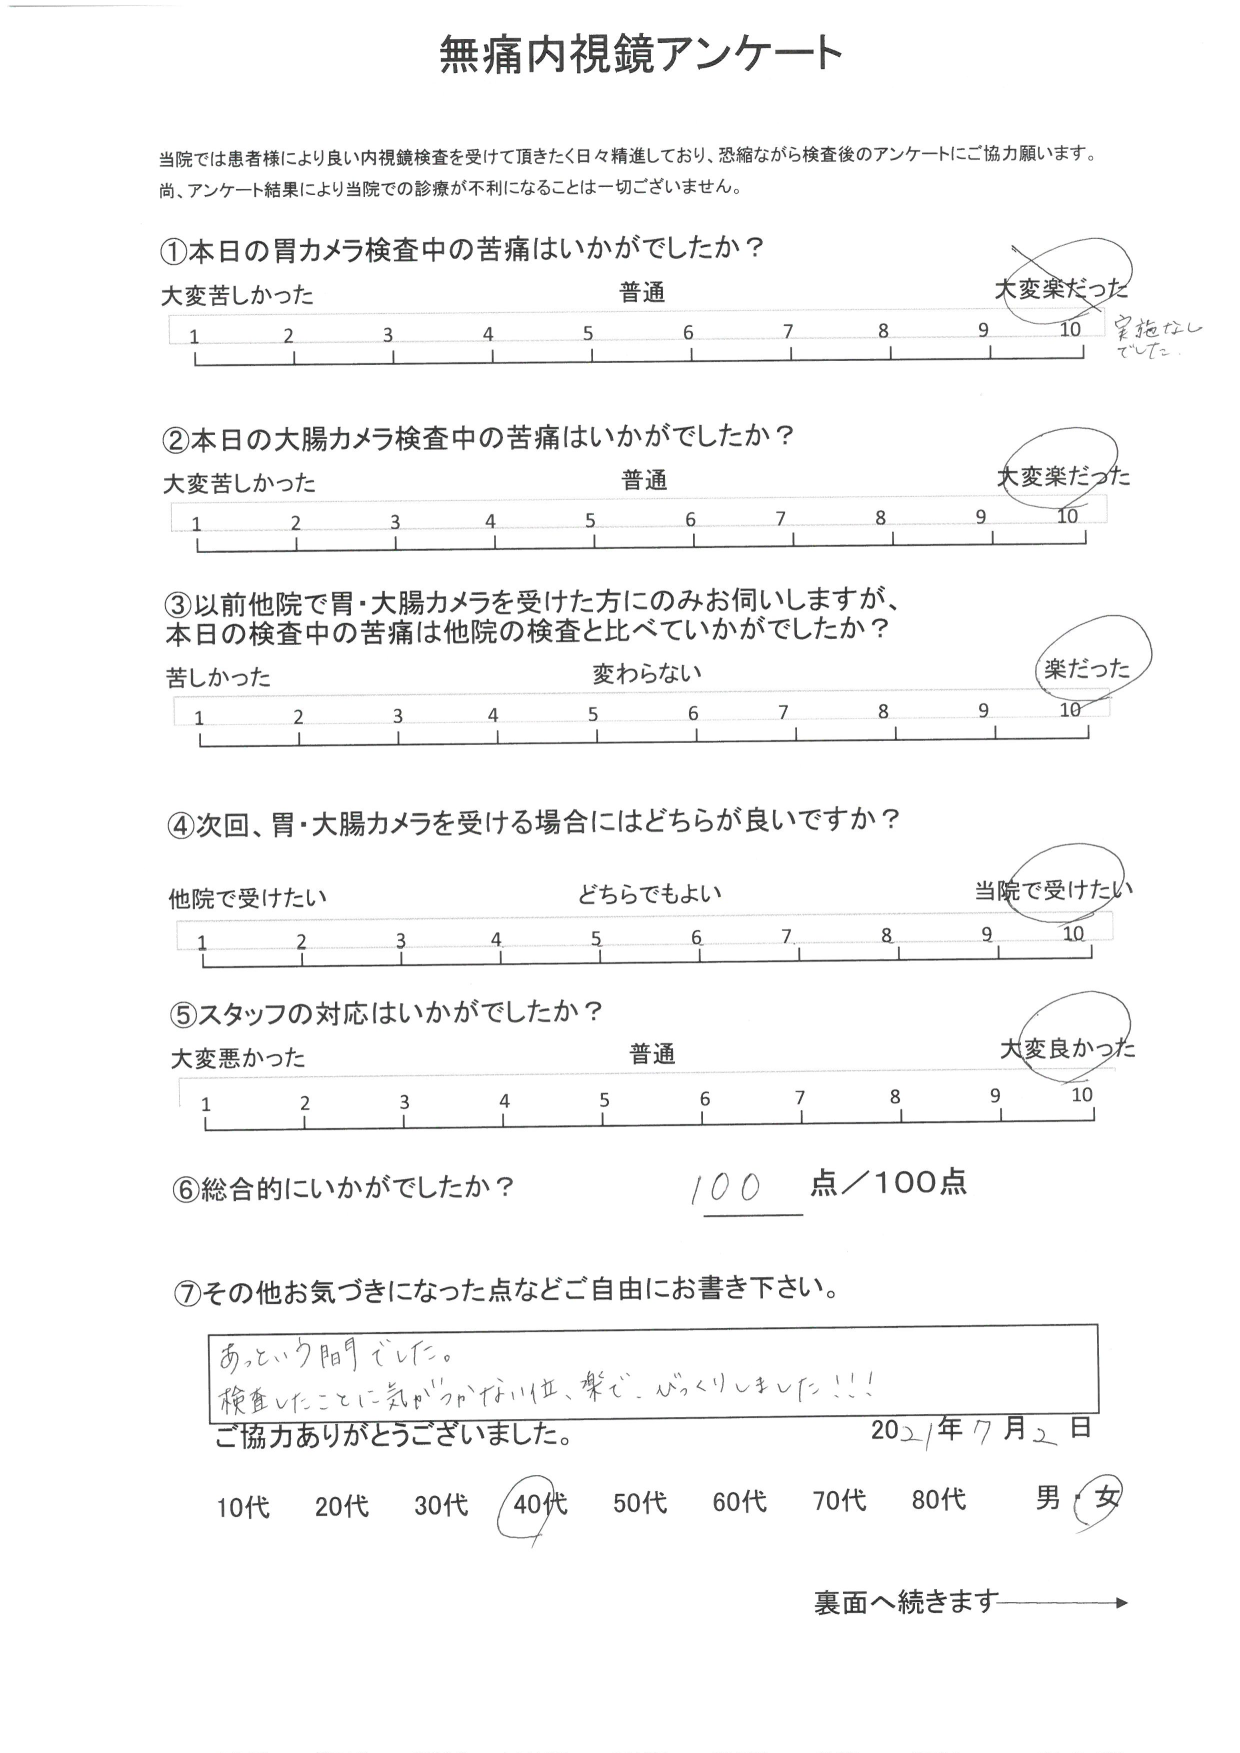 無痛内視鏡アンケート
当院では患者様により良い内視鏡検査を受けて頂きたく日々精進しており、恐縮ながら検査後のアンケートにご協力願います。
尚、アンケート結果により当院での診療が不利になることは一切ございません。
①本日の胃カメラ検査中の苦痛はいかがでしたか？
大変苦しかった 普通 大変楽だった
1 2 3 4 5 6 7 8 9 10
実施なし
でした.
②本日の大腸カメラ検査中の苦痛はいかがでしたか？
大変苦しかった 普通 大変楽だった
1 2 3 4 5 6 7 8 9 10
③以前他院で胃・大腸カメラを受けた方にのみお伺いしますが、
本日の検査中の苦痛は他院の検査と比べていかがでしたか？
苦しかった 変わらない 楽だった
1 2 3 4 5 6 7 8 9 10
④次回、胃・大腸カメラを受ける場合にはどちらが良いですか？
他院で受けたい どちらでもよい 当院で受けたい
1 2 3 4 5 6 7 8 9 10
⑤スタッフの対応はいかがでしたか？
大変悪かった 普通 大変良かった
1 2 3 4 5 6 7 8 9 10
⑥総合的にいかがでしたか？ 100 点／100点
⑦その他お気づきになった点などご自由にお書き下さい。
あっという間でした。
検査したことに気がつかない位、楽で、びっくりしました!!!
ご協力ありがとうございました。 2021年7月2日
10代 20代 30代 40代 50代 60代 70代 80代 男・女
裏面へ続きます